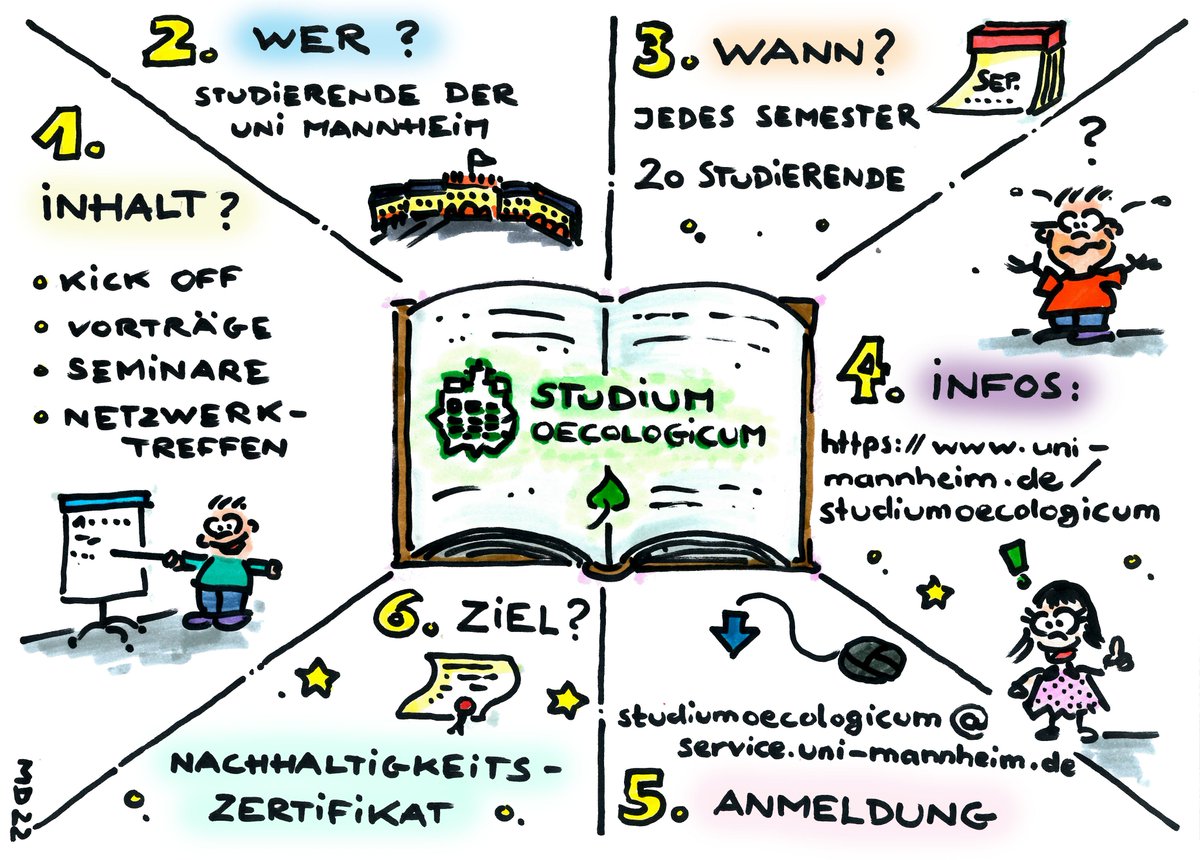 1.
INHALT?
KICK OFF
VORTRÄGE
SEMINARE
NETZWERK-
TREFFEN
2. WER?
STUDIERENDE DER
UNI MANNHEIM
3. WANN?
SEP.
JEDES SEMESTER
20 STUDIERENDE
?
STUDIUM
OECOLOGICUM
4. INFOS:
https://www.uni-
mannheim.de/
studiumoecologicum
!
studiumoecologicum@
service.uni-mannheim.de
5. ANMELDUNG
6. ZIEL?
NACHHALTIGKEITS-
ZERTIFIKAT
MD22